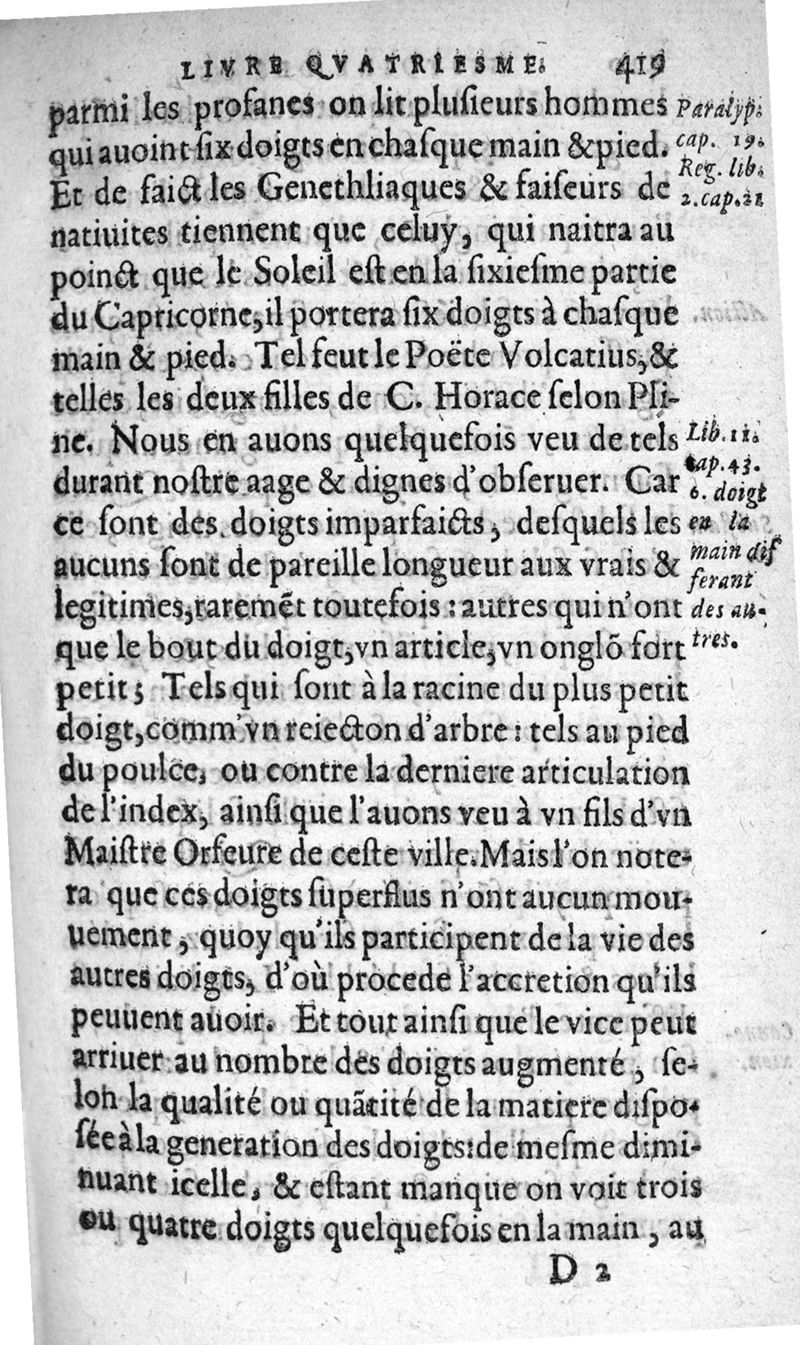 LIVRE QVATRIESME. 419
parmi les profanes on lit pluſieurs hommes
qui auoint ſix doigts en chaſque main & pied.
Et de faict les Genethliaques & faiſeurs de
natiuites tiennent que celuy, qui naitra au
poinct que le Soleil eſt en la ſixieſme partie
du Capricorne, il portera ſix doigts à chaſque
main & pied. Tel feut le Poëte Volcatius, &
telles les deux filles de C. Horace ſelon Pli-
ne. Nous en auons quelquefois veu de tels
durant noſtre aage & dignes d'obſeruer. Car
ce ſont des doigts imparfaicts, deſquels les
aucuns ſont de pareille longueur aux vrais &
legitimes, raremẽt toutefois : autres qui n'ont
que le bout du doigt, vn article, vn onglõ fort
petit; Tels qui ſont à la racine du plus petit
doigt, comm'vn reiecton d'arbre : tels au pied
du poulce, ou contre la derniere articulation
de l'index, ainſi que l'auons veu à vn fils d'vn
Maiſtre Orfeure de ceſte ville. Mais l'on note-
ra que ces doigts ſuperflus n'ont aucun mou-
uement, quoy qu'ils participent de la vie des
autres doigts, d'où procede l'accretion qu'ils
peuuent auoir. Et tout ainſi que le vice peut
arriuer au nombre des doigts augmenté, ſe-
lon la qualité ou quãtité de la matiere diſpo-
ſée à la generation des doigts: de meſme dimi-
nuant icelle, & eſtant manque on voit trois
ou quatre doigts quelquefois en la main, au
D 2
Paralyp.
cap. 19.
Reg. lib.
2. cap. 21
Lib. 11.
cap. 43.
6. doigt
en la
main dif
ferant
des au-
tres.